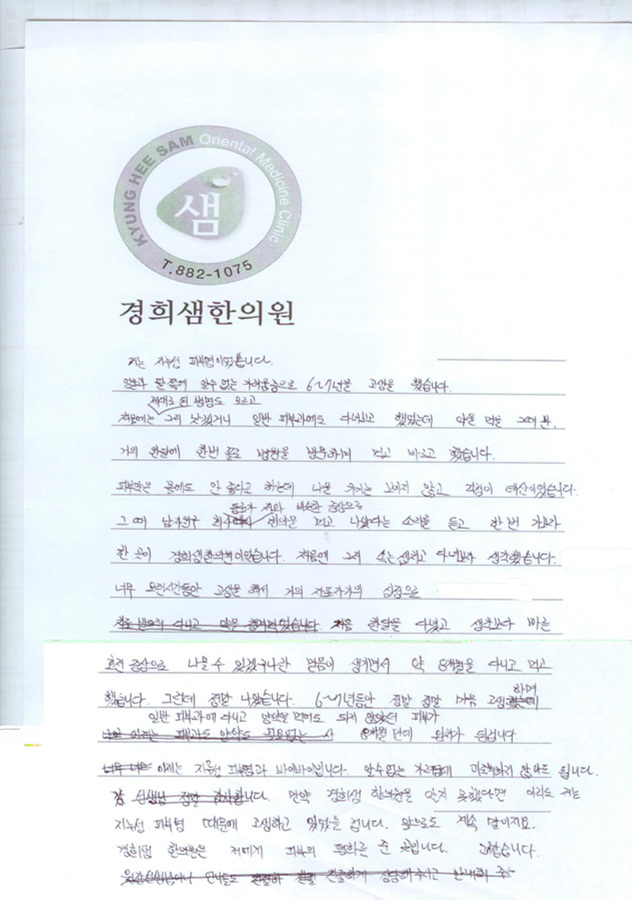 KYUNG HEE SAM Oriental Medicine Clinic
샘
T.882-1075
경희샘한의원
저는 지루성 피부염이었습니다.
얼굴과 알 수 없는 가려움증으로 6~7년을 고생을 했습니다.
제대로 된 병명도 모르고
처음에는 그저 낫겠거니 일반 피부과에도 다녀보고 했었는데 약을 먹을 그때 뿐,
거의 한달에 한번 꼴로 병원을 방문하여 먹고 바르고 했습니다.
피부약은 몸에도 안 좋다고 하는데 나을 기미는 보이지 않고 걱정이 태산이었습니다.
친구가 저와 비슷한 증상으로
그 때 남자친구 한약을 먹고 나았다는 소리를 듣고 한 번 가보자
한 곳이 경희샘한의원이었습니다. 처음엔 그저 속는셈치고 다녀보자 생각했습니다.
너무 오랜시간동안 고생을 해서 거의 자포자기의 심정으로
처음 한달을 다녔고 생각보다 빠른
호전 증상으로 나을 수 있겠구나란 믿음이 생기면서 약 8개월을 다니고 먹고
했습니다. 그런데 정말 나았습니다. 6~7년동안 정말 정말 마음 고생하며
일반 피부과에 다니고 양약을 먹어도 되지 않았던 피부가
8개월 만에 회복가 됩니다
이제는 지루성 피부염과 바이바이입니다. 알수없는 가려움에 않아도 됩니다.
만약 경희샘 한의원을 알지 못했다면 아직도 저는
지루성 피부염 때문에 고생하고 있었을 겁니다. 앞으로도 계속 말이지요.
경희샘 한의원은 저에게 피부의 평화를 준 곳입니다. 고맙습니다.